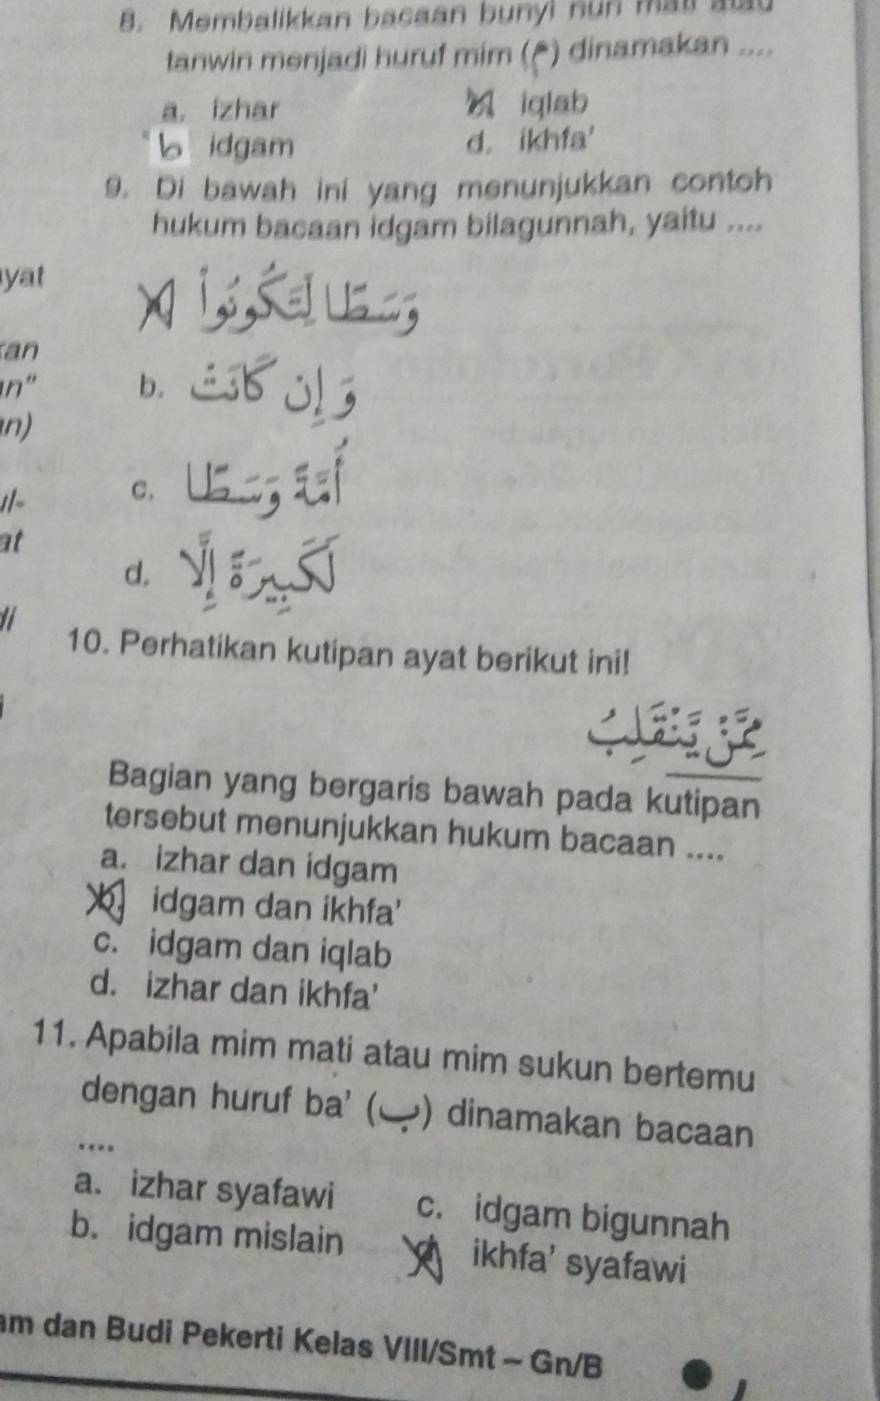 8. Membalikkan bacaan bunyi nun mati atau
tanwin menjadi huruf mim (م) dinamakan ....
a. izhar
iqlab
b idgam
d. ikhfa'
9. Di bawah ini yang menunjukkan contoh
hukum bacaan idgam bilagunnah, yaitu ....
yat
وَسَطًا لِّتَكُوْنُوْا
an
n"
b. وَ إِن كَانَتْ
n)
c. أُمَّةً وَسَطًا
il-
at
d. لَكَبِيرَةً إِلَّا
di
10. Perhatikan kutipan ayat berikut ini!
مِمَّنْ يَّنْقَلِبُ
Bagian yang bergaris bawah pada kutipan
tersebut menunjukkan hukum bacaan ....
a. izhar dan idgam
b. idgam dan ikhfa'
c. idgam dan iqlab
d. izhar dan ikhfa'
11. Apabila mim mati atau mim sukun bertemu
dengan huruf ba' (ب) dinamakan bacaan
....
a. izhar syafawi
c. idgam bigunnah
b. idgam mislain
ikhfa' syafawi
am dan Budi Pekerti Kelas VIII/Smt – Gn/B